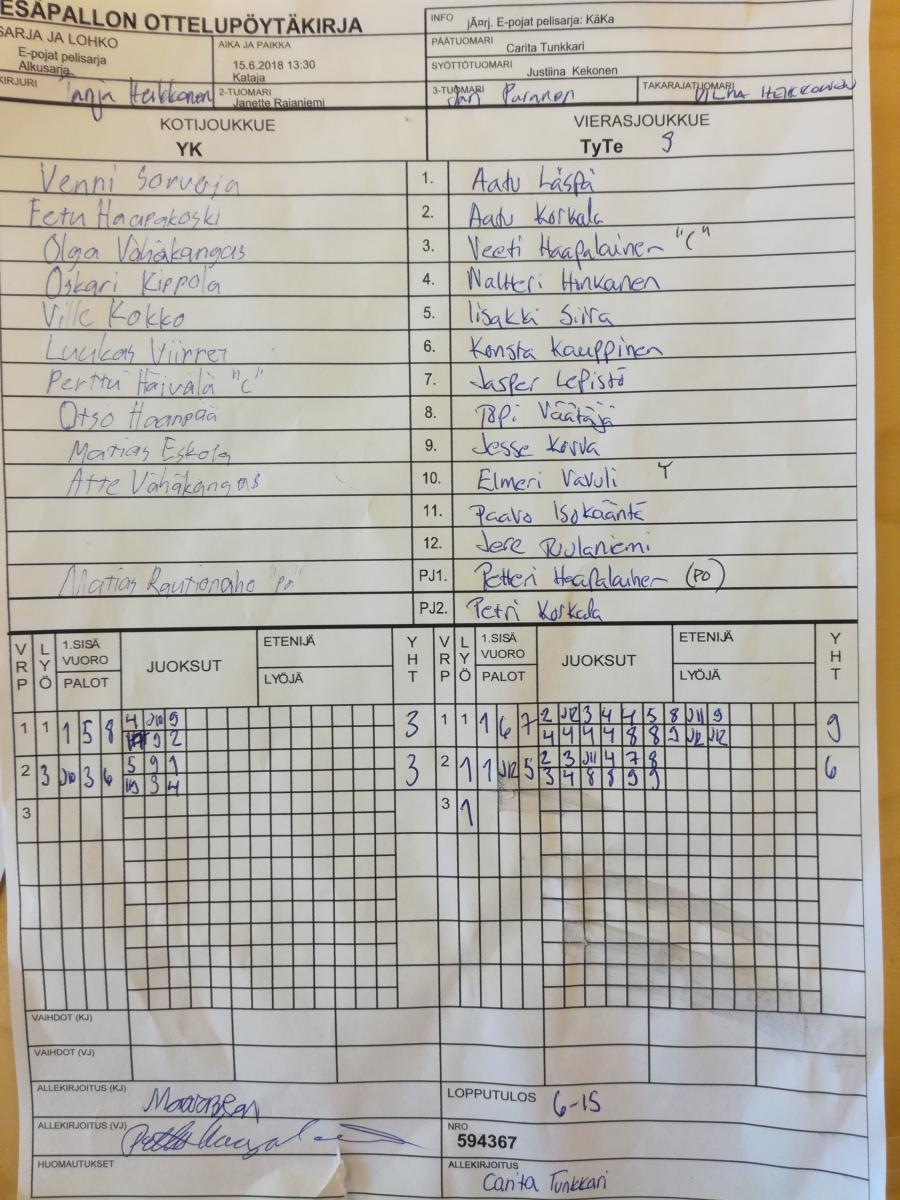 ESÄPALLON OTTELUPÖYTÄKIRJA
INFO jÃ¤rj. E-pojat pelisarja: KäKa
SARJA JA LOHKO
E-pojat pelisarja
Alkusarja
AIKA JA PAIKKA
15.6.2018 13:30
Kataja
PÄÄTUOMARI Carita Tunkkari
SYÖTTÖTUOMARI Justiina Kekonen
KIRJURI Tanja Heikkonen
2-TUOMARI Janette Rajaniemi
3-TUOMARI Jari Paranen
TAKARAJATUOMARI VILMA HEIKKONEN
KOTIJOUKKUE
YK
VIERASJOUKKUE
TyTe 9
Venni Sorvoja 1. Aatu Läspä
Eetu Haapakoski 2. Aatu Korkala
Olga Vähäkangas 3. Veeti Haapalainen "C"
Oskari Kippola 4. Valtteri Hinkanen
Ville Kokko 5. Iisakki Siira
Luukas Viirret 6. Konsta Kauppinen
Perttu Häivälä "C" 7. Jasper Lepistö
Otso Haanpää 8. Topi Väätäjä
Matias Eskola 9. Jesse Korva
Atte Vähäkangas 10. Elmeri Vavuli Y
11. Paavo Isokääntä
12. Jere Puulaniemi
Matias Rautionaho "PO" PJ1. Petteri Haapalainen (PO)
PJ2. Petri Korkala
VRP LYÖ 1.SISÄ VUORO PALOT JUOKSUT ETENIJÄ LYÖJÄ YHT VRP LYÖ 1.SISÄ VUORO PALOT JUOKSUT ETENIJÄ LYÖJÄ YHT
1 1 1 5 8 4 J10 9 3 1 1 1 6 7 2 J12 3 4 4 5 8 J11 9 9
9 2 4 4 4 4 8 8 9 J12 J12
2 3 J10 3 6 5 9 1 3 2 1 1 J12 5 2 3 J11 4 7 8 6
10 3 4 3 4 8 8 9 9
3 3 1
VAIHDOT (KJ)
VAIHDOT (VJ)
ALLEKIRJOITUS (KJ)
LOPPUTULOS 6-15
ALLEKIRJOITUS (VJ)
NRO
594367
HUOMAUTUKSET
ALLEKIRJOITUS
Carita Tunkkari